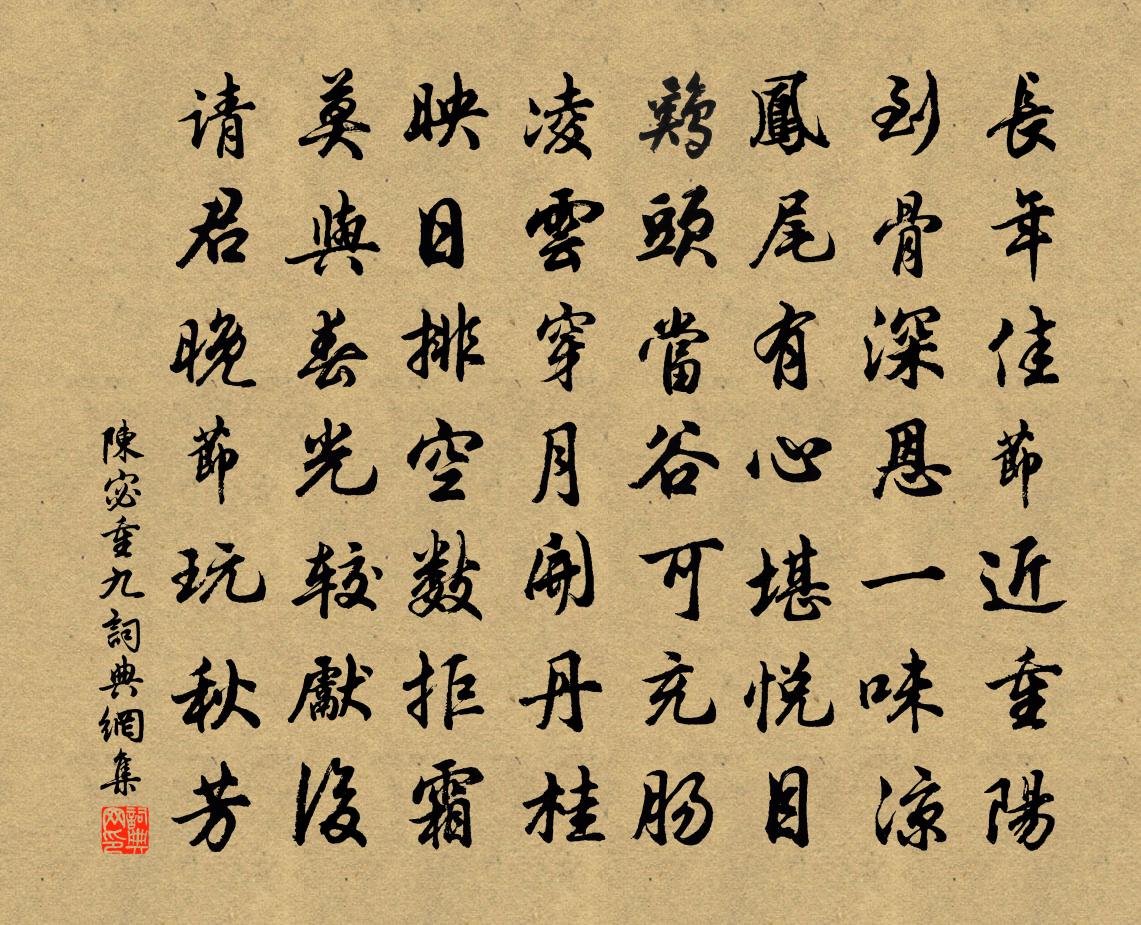 長年佳節近重陽
到骨深恩一味涼
鳳尾有心堪悅目
鶏頭當谷可充肠
凌雲穿月開丹桂
映日排空數拒霜
莫與春光較獻後
请君晚節玩秋芳
陳宓重九詞典網集
詞典网印